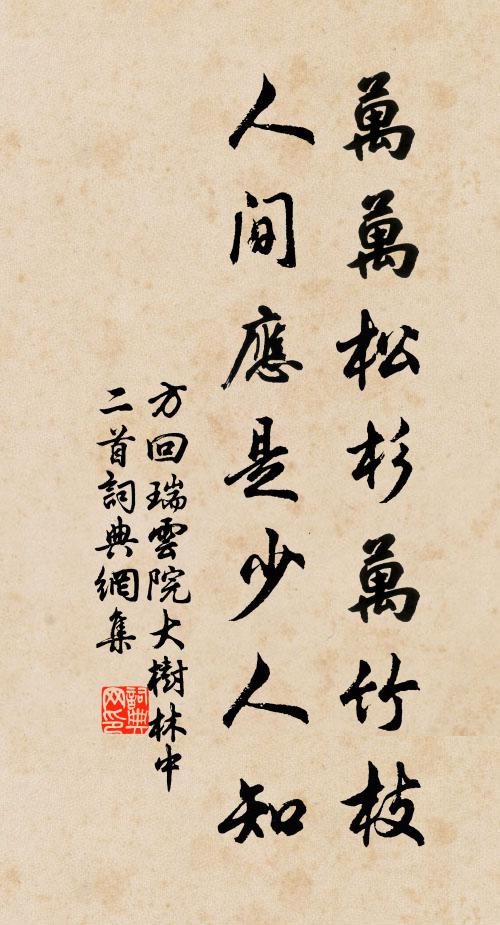 萬萬松杉萬竹枝
人間應是少人知
方回瑞雲院大樹林中
二首詞典網集
詞典
网印